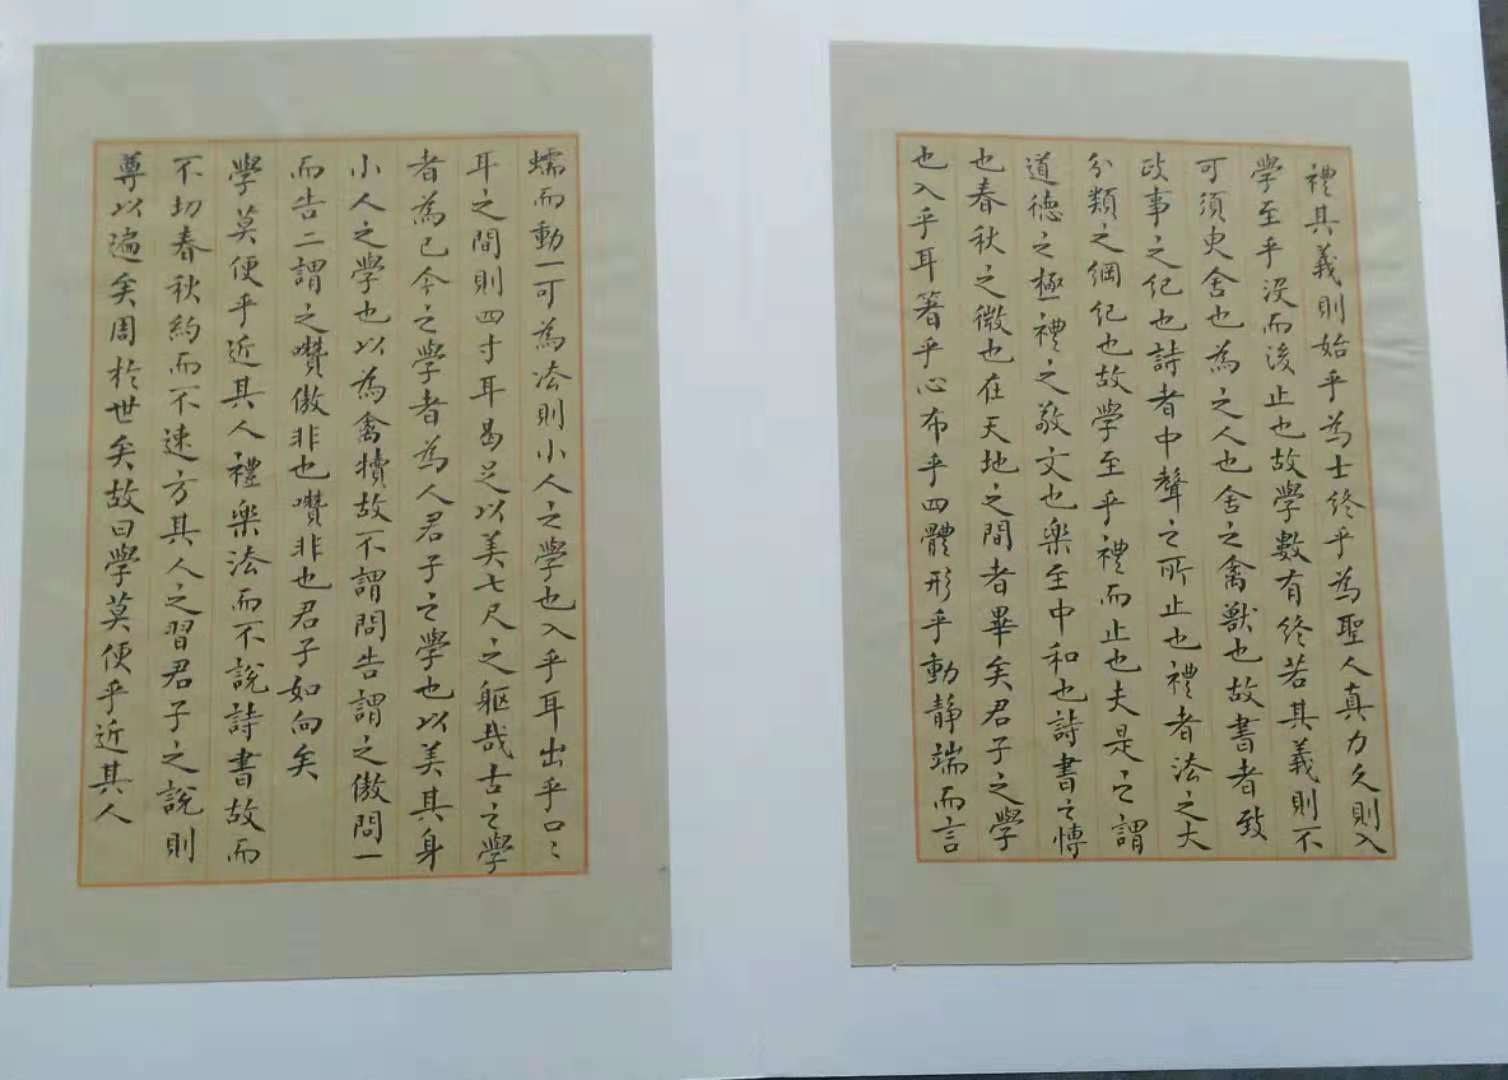 禮其義則始乎為士終乎為聖人真力久則入
學至乎沒而後止也故學數有終若其義則不
可須臾舍也為之人也舍之禽獸也故書者致
政事之紀也詩者中聲之所止也禮者法之大
分類之綱紀也故學至乎禮而止也夫是之謂
道德之極禮之敬文也樂至中和也詩書之博
也春秋之微也在天地之間者畢矣君子之學
也入乎耳著乎心布乎四體形乎動靜端而言
蠕而動一可為法則小人之學也入乎耳出乎口〻
耳之間則四寸耳曷足以美七尺之軀哉古之學
者為己今之學者為人君子之學也以美其身
小人之學也以為禽犢故不謂問告謂之傲問一
而告二謂之囋傲非也囋非也君子如向矣
學莫便乎近其人禮樂法而不說詩書故而
不切春秋約而不速方其人之習君子之說則
尊以遍矣周於世矣故曰學莫便乎近其人